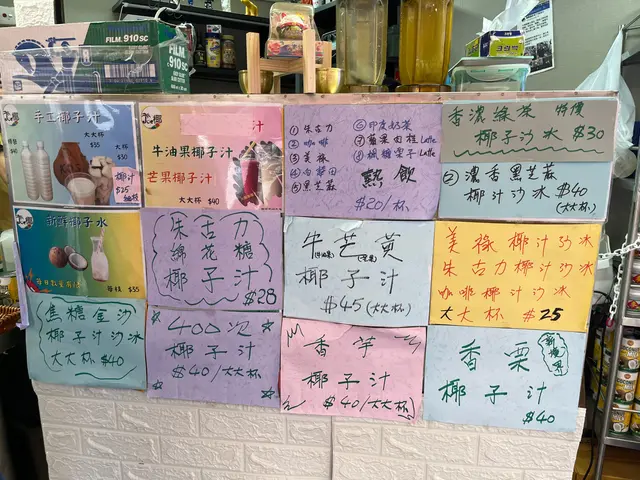 FILM.910SC
FILM.910SC
手工椰子汁
大大杯
$35
$30
椰汁
$25
細枝
汁
牛油果椰子汁
芒果椰子汁
大大杯 $40
① 朱古力
② 咖啡
③ 美祿
⑤ 黑芝麻
⑥ 印度奶茶
⑦ 蘋果肉桂 Latte
⑧ 楓糖栗子 Latte
熱飲
$20/杯
香濃綠茶 特價
椰子沙冰 $30
② 濃香黑芝麻
椰汁沙冰 $40
(大大杯)
新鮮椰子水
每枝 $35
朱古力
綿花糖
椰子汁
$28
牛芒黃
椰子汁
$45 (大大杯)
美祿椰汁沙冰
朱古力椰汁沙冰
咖啡椰汁沙冰
大大杯 $25
焦糖金沙
椰子汁沙冰
大大杯 $40
400次
椰子汁
$40/大大杯
香芋
椰子汁
$40/大大杯
香栗
椰子汁
$40